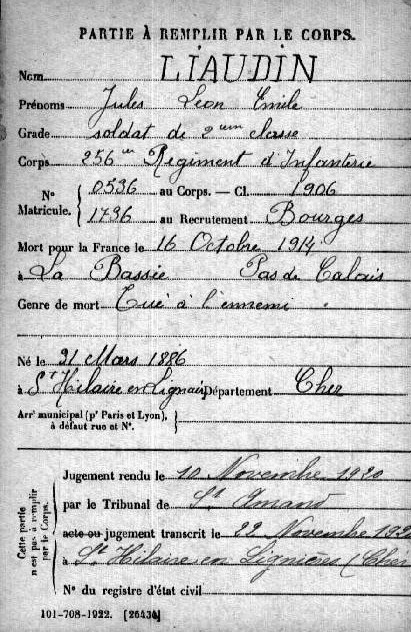 PARTIE À REMPLIR PAR LE CORPS.
Nom LIAUDIN
Prénoms Jules Léon Emile
Grade soldat de 2eme classe
Corps 256me Régiment d'Infanterie
N° Matricule. 0536 au Corps. — Cl. 1906
1436 au Recrutement Bourges
Mort pour la France le 16 Octobre 1914
à La Bassée Pas de Calais
Genre de mort Tué à l'ennemi
Né le 21 Mars 1886
à St Hilaire en Lignières Département Cher
Arrt municipal (pr Paris et Lyon), à défaut rue et N°.
Cette partie n'est pas à remplir par le Corps.
Jugement rendu le 10 Novembre 1920
par le Tribunal de St Amand
acte ou jugement transcrit le 22 Novembre 1920
à St Hilaire en Lignières (Cher
N° du registre d'état civil
101-708-1922. [26434]